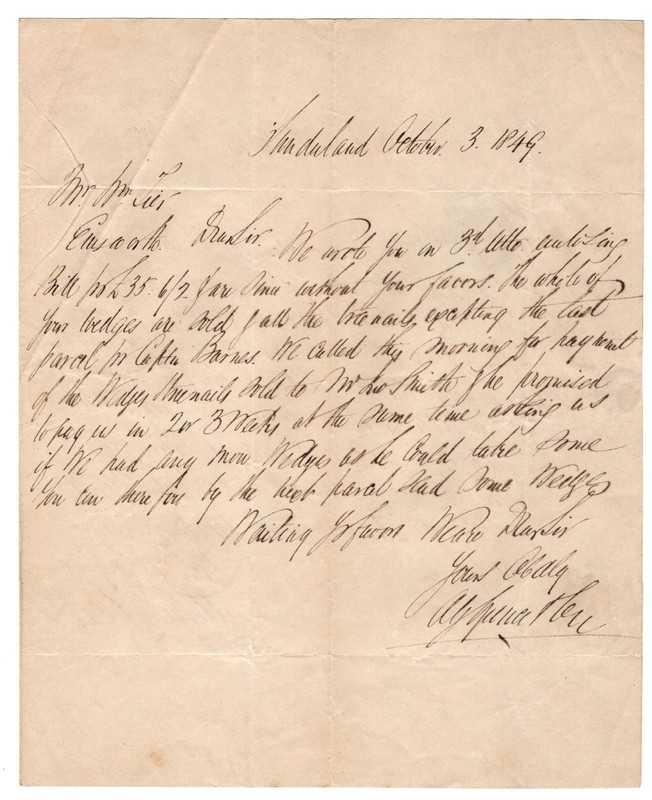 Sunderland October 3. 1849.
Mr. Wm Tier
Emsworth. Dear Sir. We wrote you on 3rd Ulto. enclosing
Bill pr £35. 6/2 & are since without your favors. The whole of
your wedges are sold & all the treenails excepting the last
parcel pr Captn Barnes. We called this morning for payment
of the Wedges & treenails sold to Mr Smith & he promised
to pay us in 2 or 3 Weeks at the same time asking us
if We had any more Wedges as he could take some
You can therefore by the next parcel send some Wedges
Waiting Yr favors We are Dear Sir
Yours Obdly
& Co